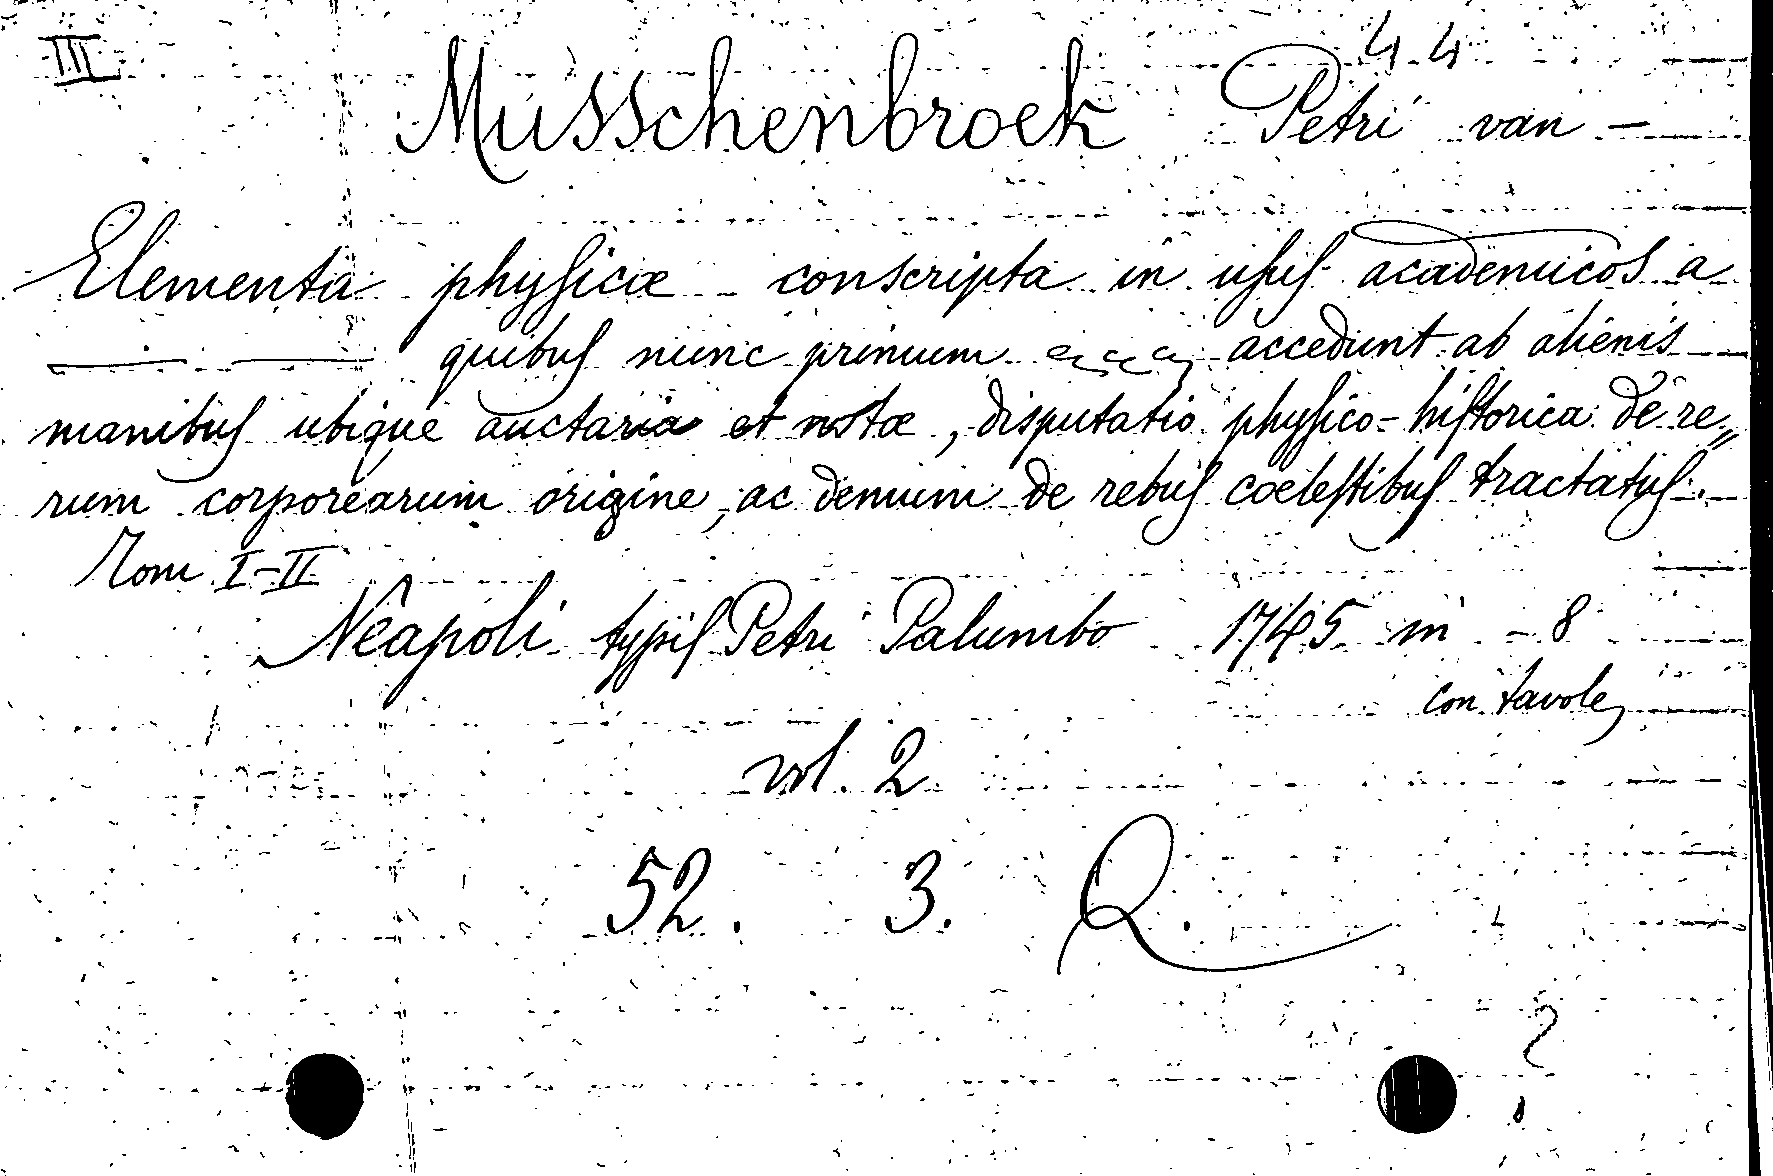 III 44
Musschenbroek Petri van —
Elementa physicæ conscripta in usus academicos a
— — quibus nunc primum accedunt ab alienis
manibus ubique auctaria et notæ, disputatio physico-historica de re„
rum corporearum origine, ac demum de rebus cœlestibus tractatus.
Tom I-II
Neapoli typis Petri Palumbo 1745 in - 8
con tavole
vol. 2
52. 3. Q.
?